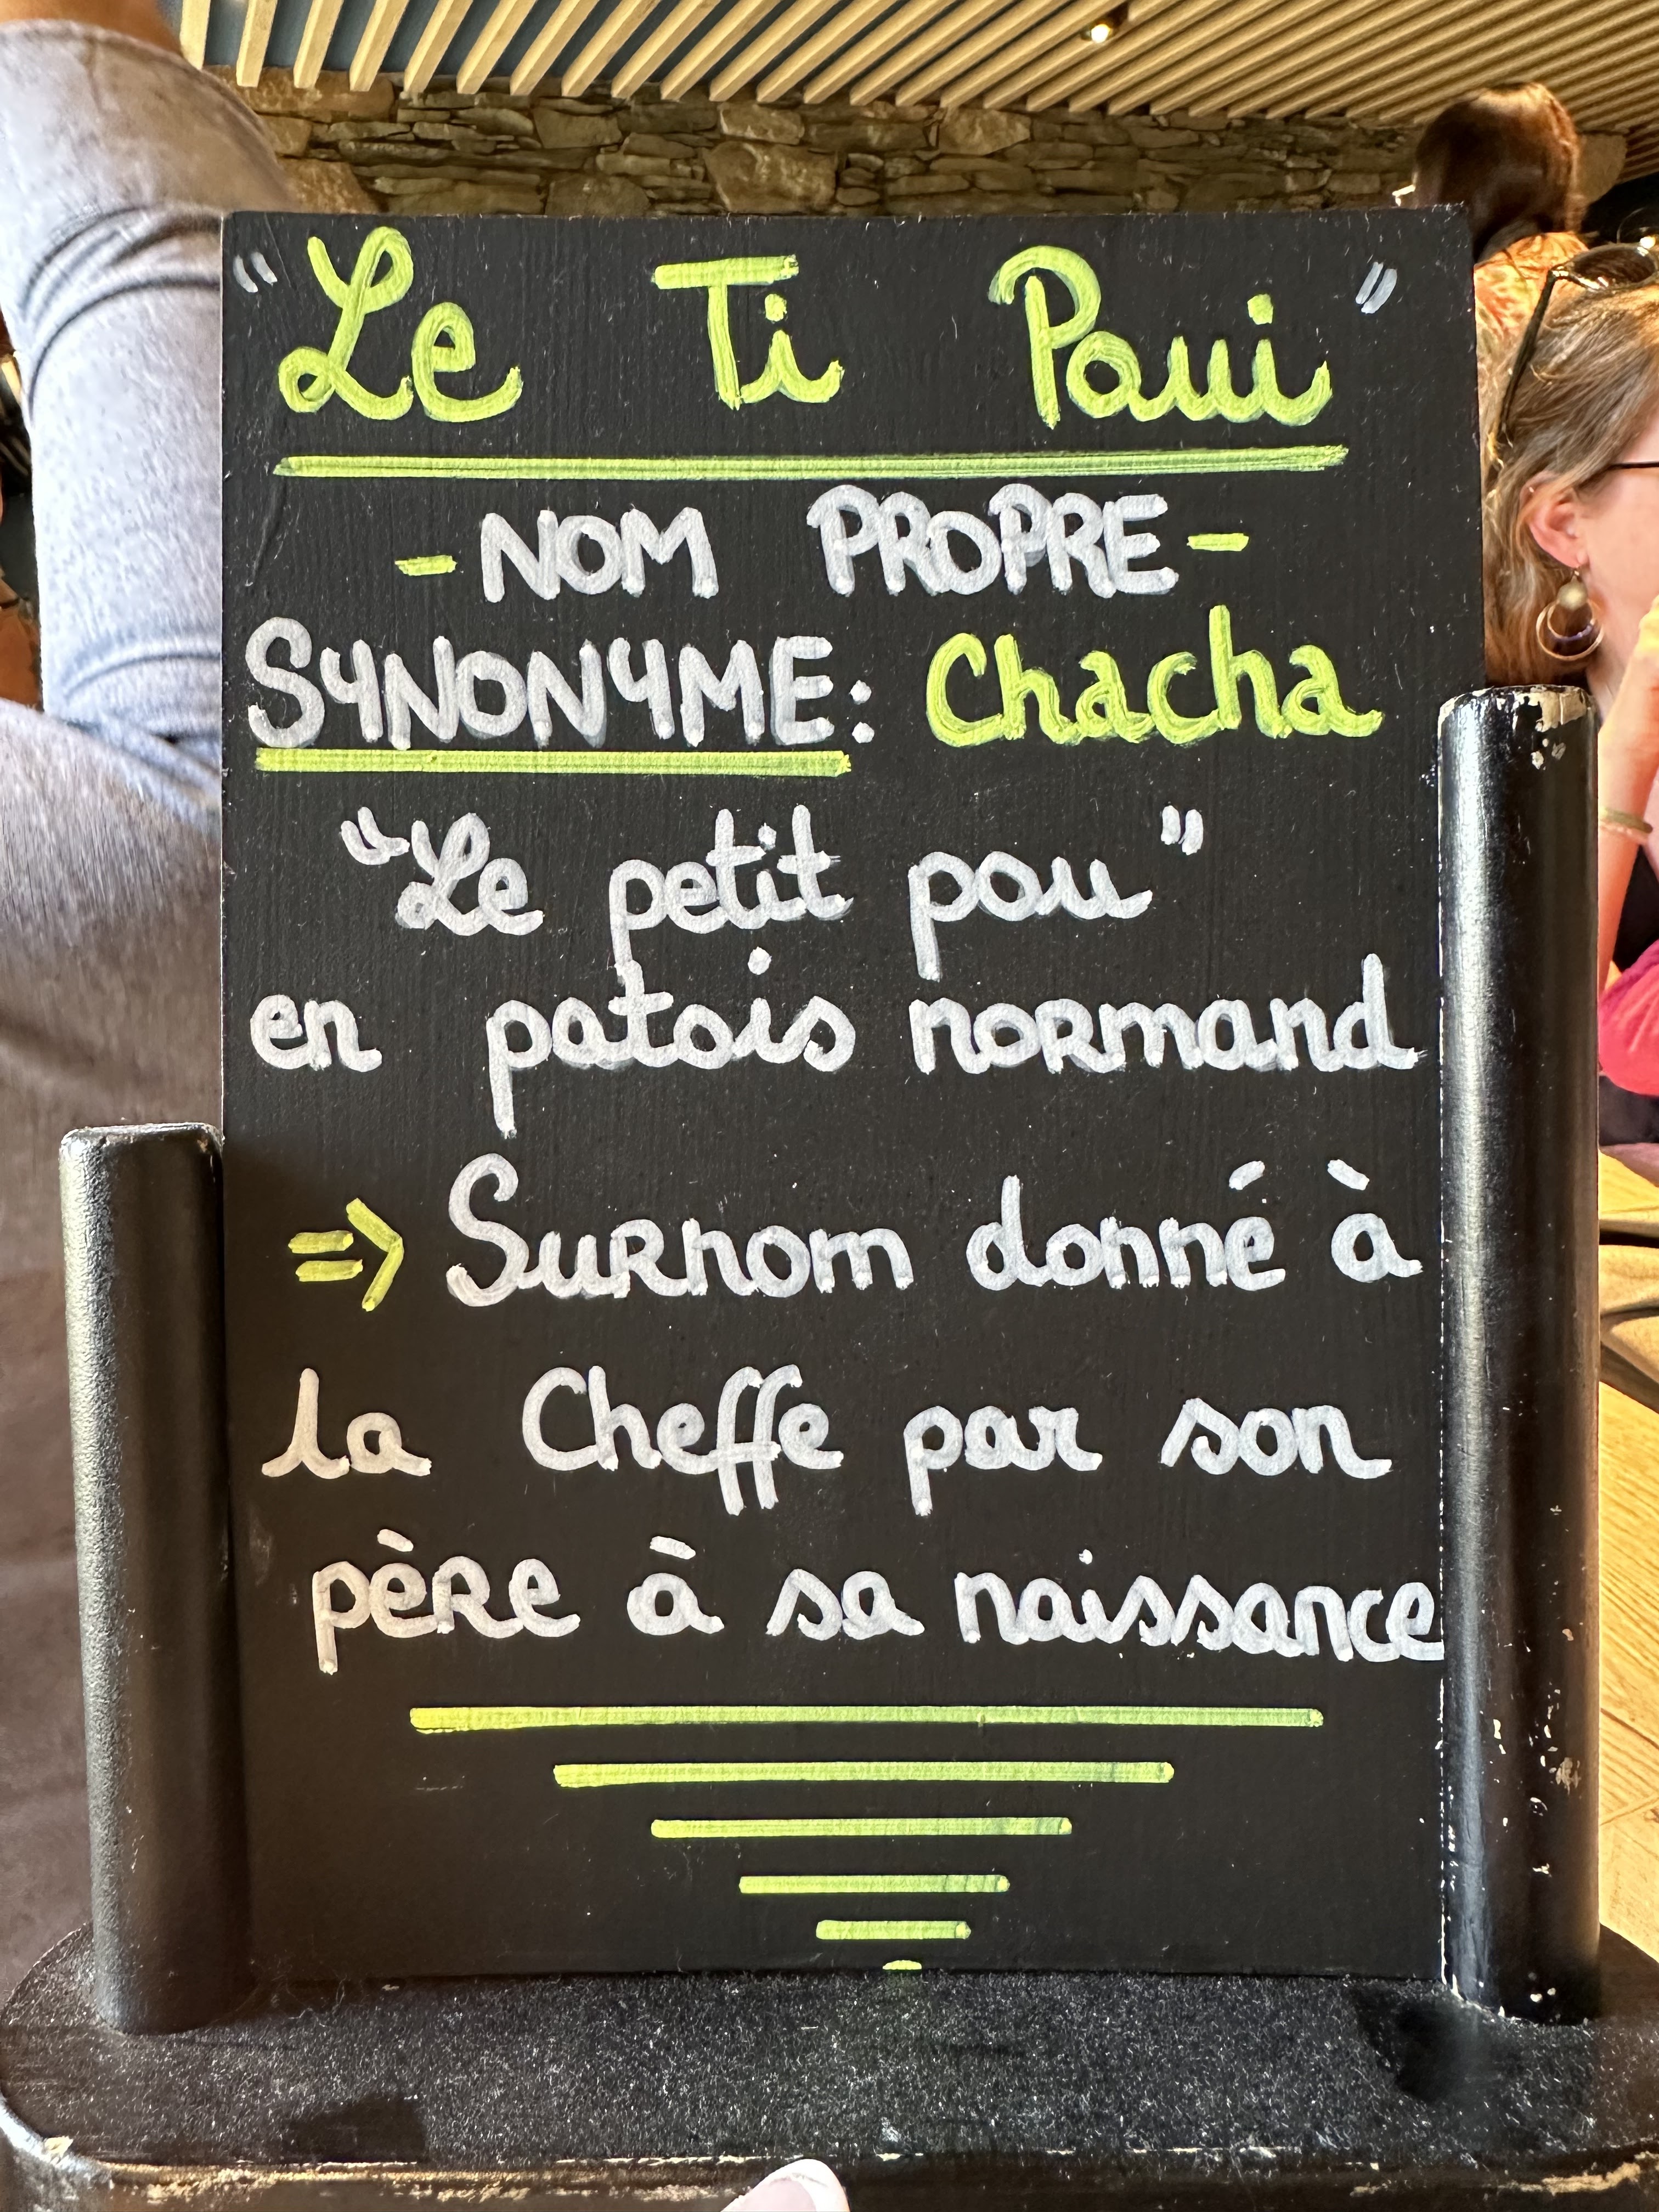 "Le Ti Poui"
- NOM PROPRE -
SYNONYME: Chacha
"Le petit pou"
en patois normand
=> Surnom donné à
la Cheffe par son
père à sa naissance